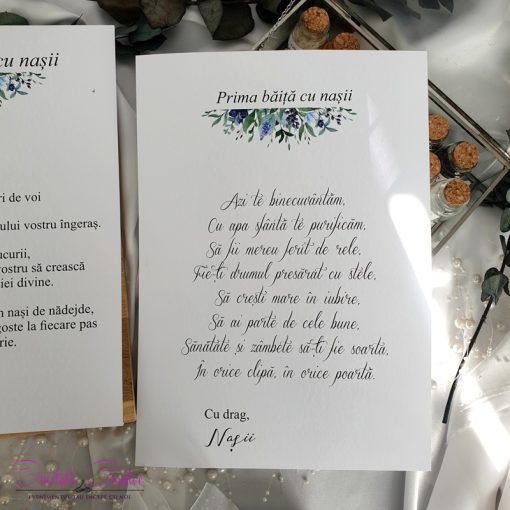 cu nașii
ri de voi
ului vostru îngeraș.
ucurii,
vostru să crească
iei divine.
n nași de nădejde,
goste la fiecare pas
rie.
Prima băiță cu nașii
Azi te binecuvântăm,
Cu apa sfântă te purificăm,
Să fii mereu ferit de rele,
Fie-ți drumul presărat cu stele,
Să crești mare în iubire,
Să ai parte de cele bune,
Sănătate și zâmbete să-ți fie soartă,
În orice clipă, în orice poartă.
Cu drag,
Nașii
EVENIMENTELE TALE INCEPE CU NOI